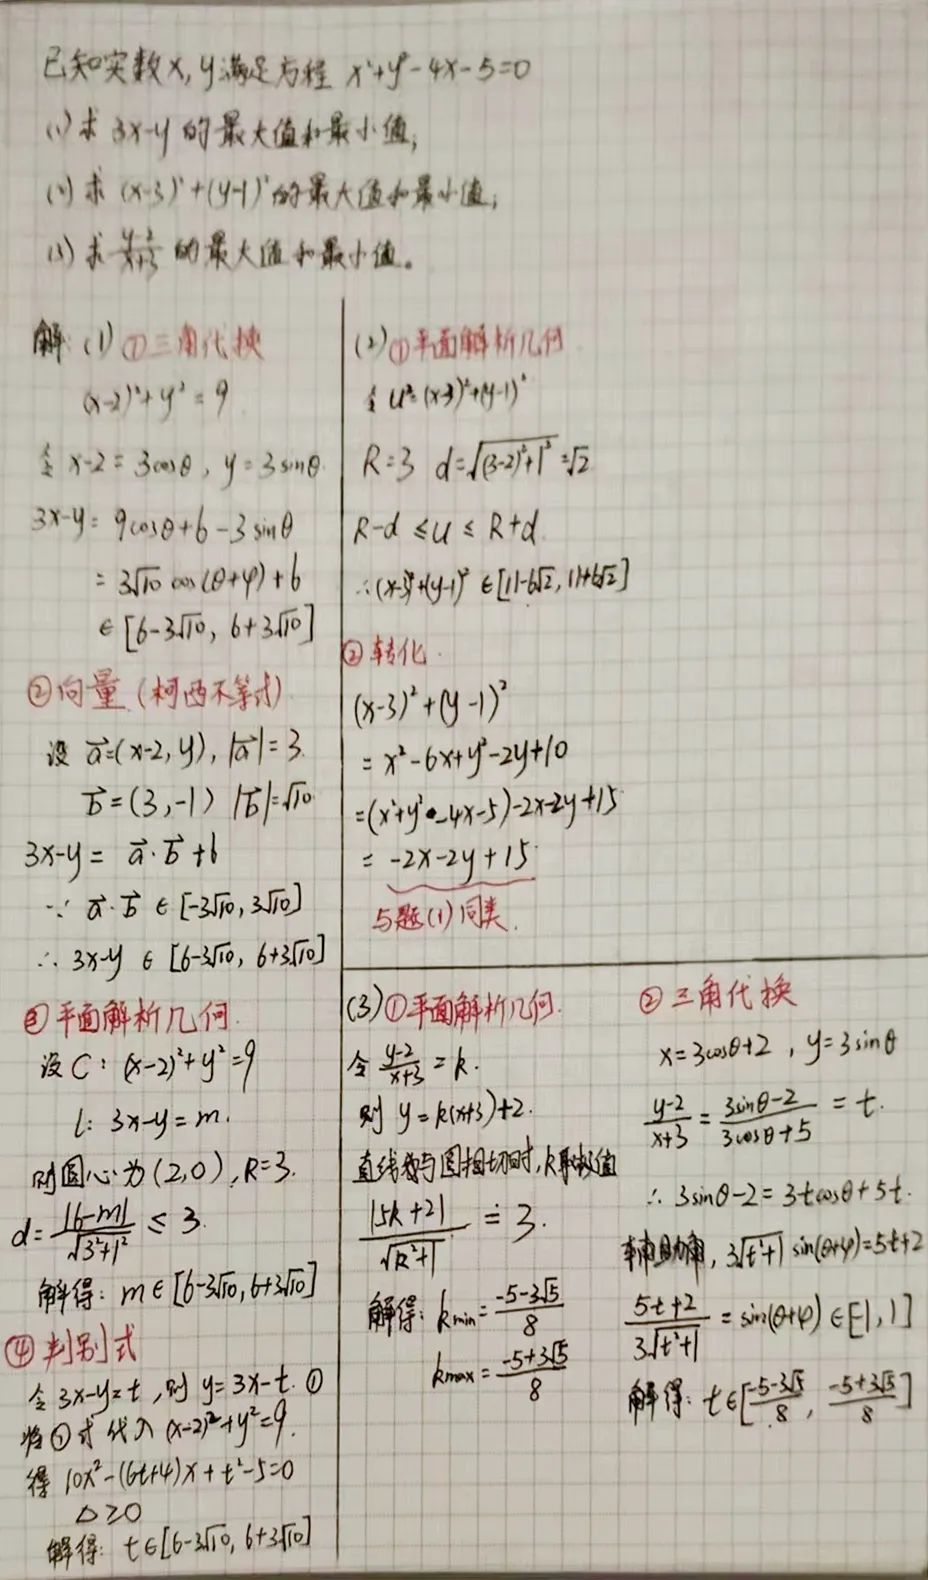 已知实数x,y满足方程 x²+y²-4x-5=0
(1)求 3x-y 的最大值和最小值;
(2)求 (x-3)²+(y-1)² 的最大值和最小值;
(3)求 (y-2)/(x+3) 的最大值和最小值。
解:(1)①三角代换
(x-2)²+y²=9
令 x-2=3cosθ, y=3sinθ
3x-y=9cosθ+6-3sinθ
=3√10 cos(θ+φ)+6
∈[6-3√10, 6+3√10]
②向量(柯西不等式)
设 a⃗=(x-2,y), |a⃗|=3.
b⃗=(3,-1) |b⃗|=√10
3x-y= a⃗·b⃗+6
∵ a⃗·b⃗ ∈[-3√10, 3√10]
∴ 3x-y ∈ [6-3√10, 6+3√10]
③平面解析几何.
设C: (x-2)²+y²=9
l: 3x-y=m.
则圆心为(2,0), R=3.
d=|6-m|/√(3²+1²) ≤ 3.
解得: m∈[6-3√10, 6+3√10]
④判别式
令 3x-y=t,则 y=3x-t. ①
将①式代入 (x-2)²+y²=9.
得 10x²-(6t+4)x+t²-5=0
△≥0
解得: t∈[6-3√10, 6+3√10]
(2)①平面解析几何
令 u²=(x-3)²+(y-1)²
R=3 d=√((3-2)²+1²)=√2
R-d ≤ u ≤ R+d.
∴(x-3)²+(y-1)² ∈[11-6√2, 11+6√2]
②转化.
(x-3)²+(y-1)²
= x²-6x+y²-2y+10
=(x²+y²-4x-5)-2x-2y+15
= -2x-2y+15
与题(1)同类.
(3)①平面解析几何.
令 (y-2)/(x+3)=k.
则 y=k(x+3)+2.
直线与圆相切时,k取极值
|5k+2|/√(k²+1) = 3.
解得: kmin=(-5-3√5)/8
kmax=(-5+3√5)/8
②三角代换
x=3cosθ+2, y=3sinθ
(y-2)/(x+3)=(3sinθ-2)/(3cosθ+5)=t.
∴ 3sinθ-2=3tcosθ+5t.
辅助角, 3√(t²+1) sin(θ+φ)=5t+2
(5t+2)/(3√(t²+1))=sin(θ+φ)∈[-1,1]
解得: t∈[(-5-3√5)/8, (-5+3√5)/8]